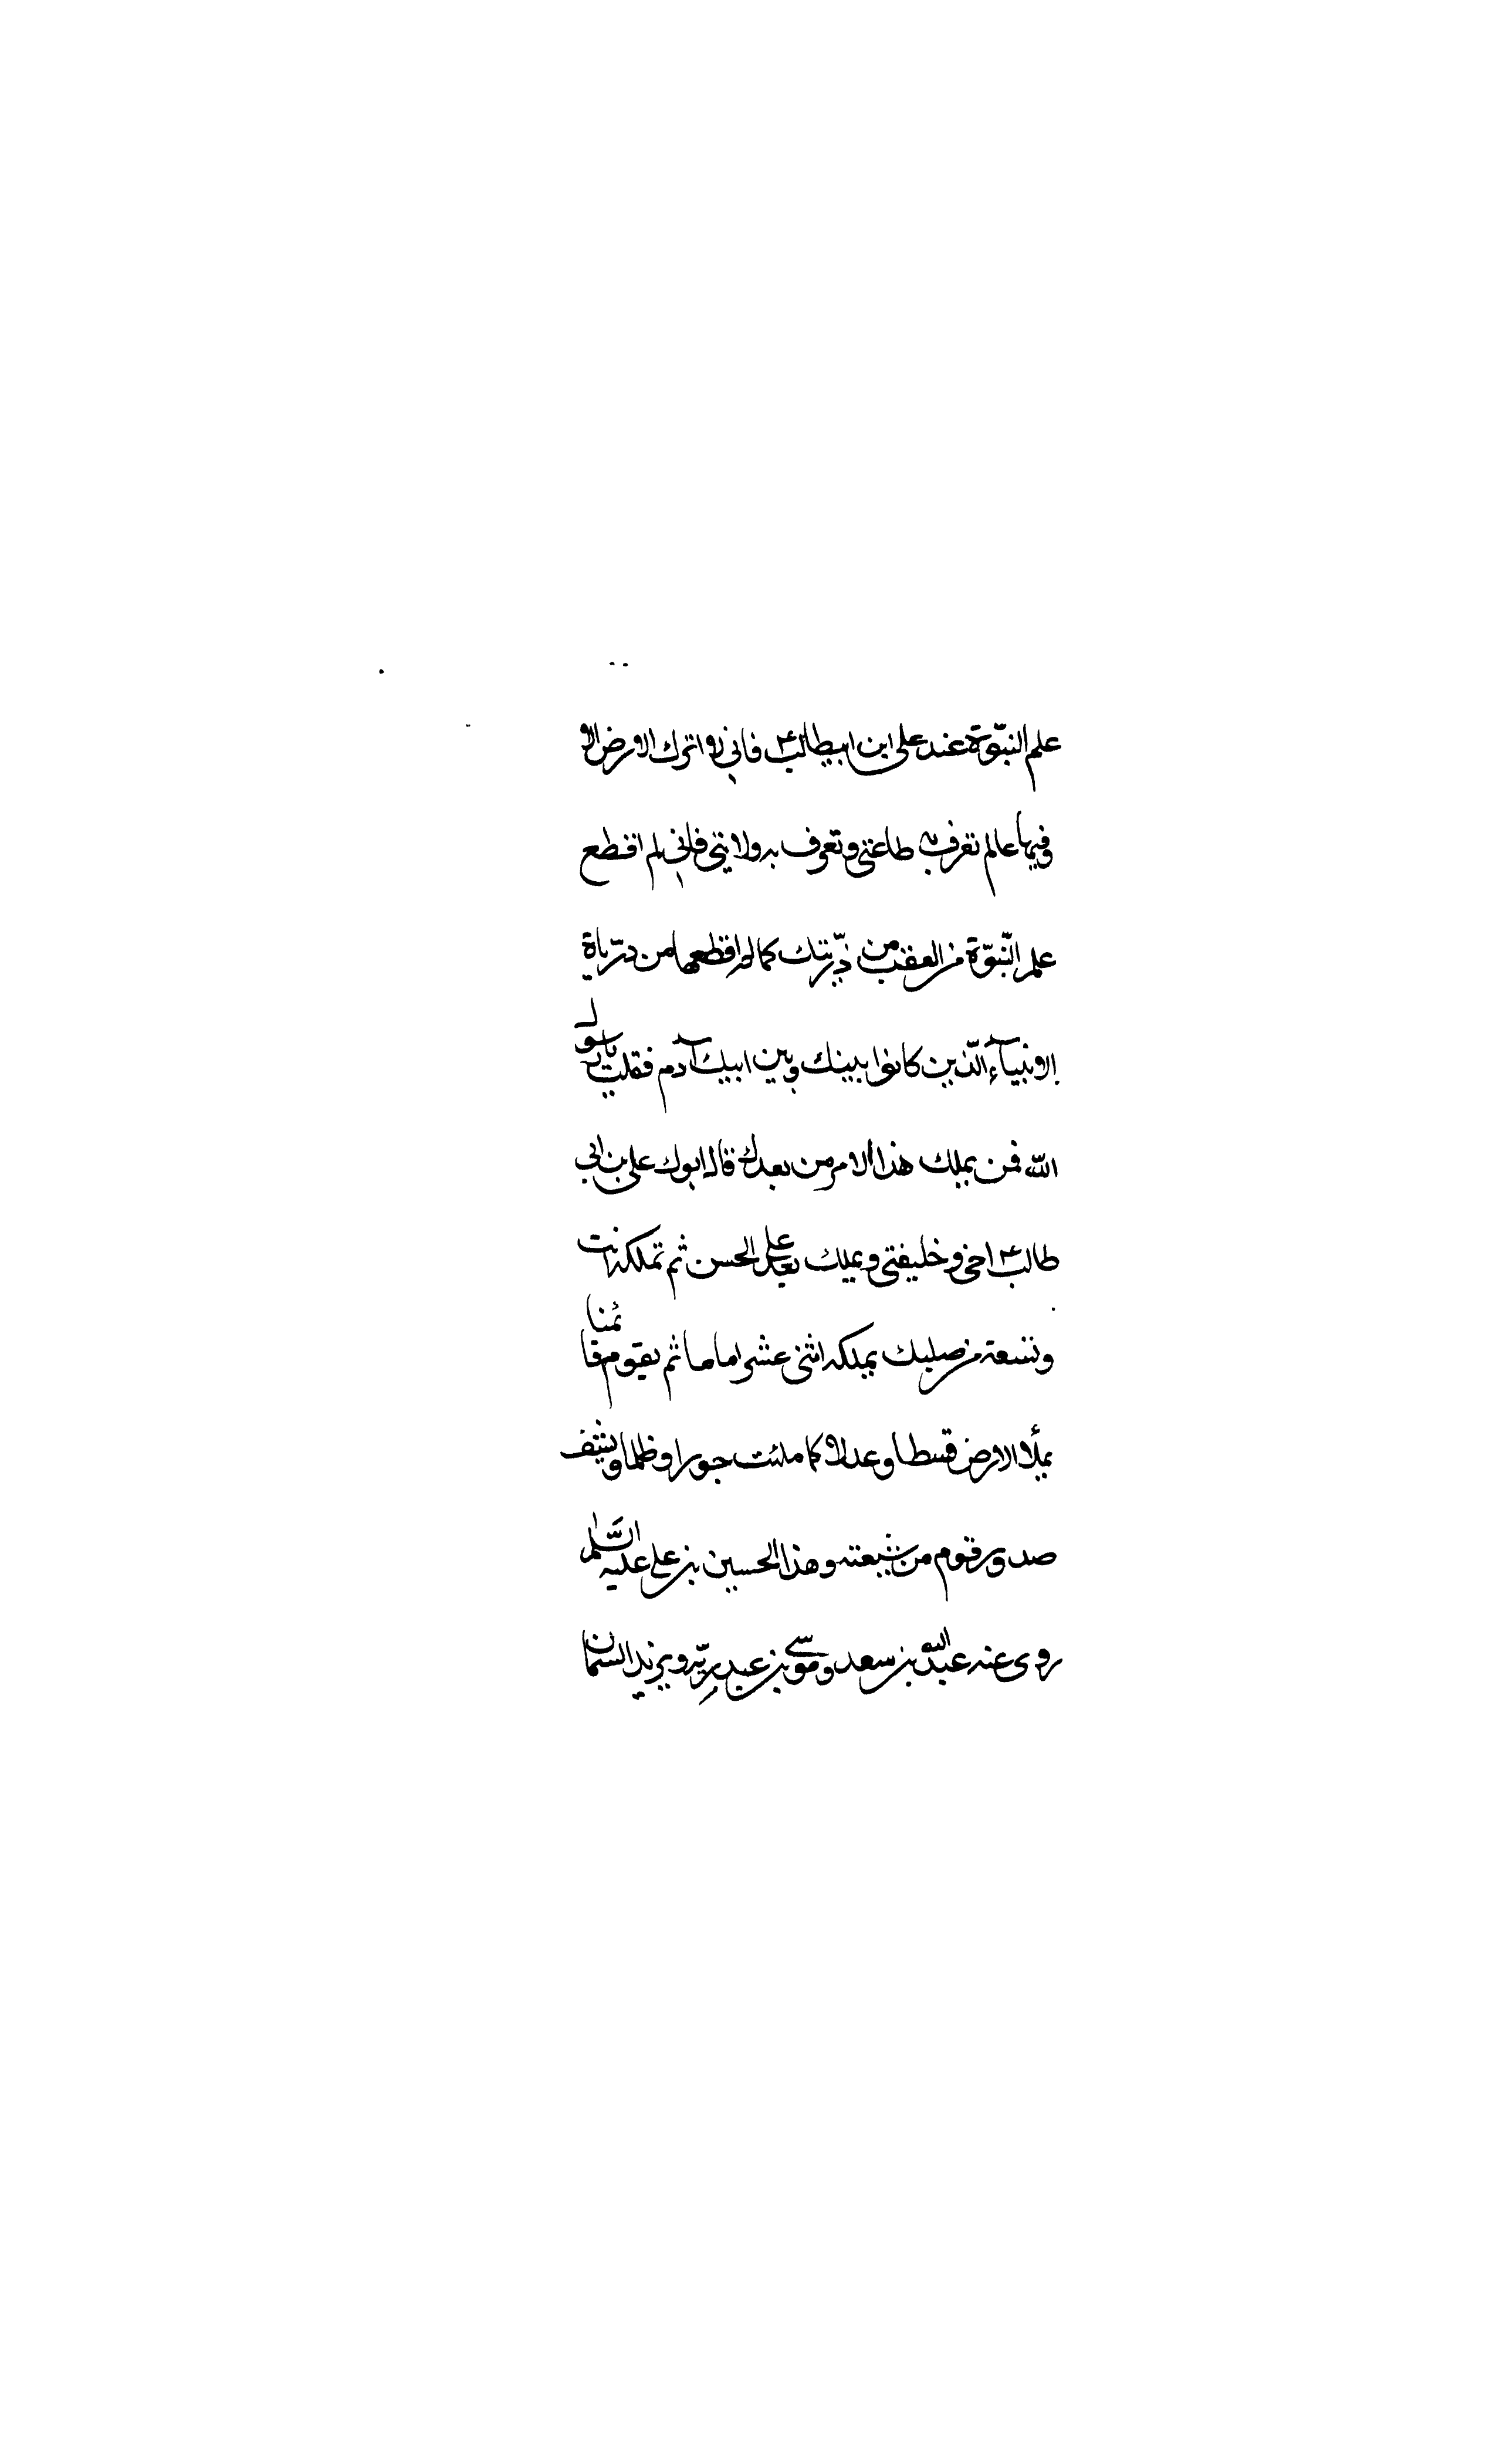 علم النبّوة عند علی ابن ابیطالب ع فانی لا اترك الارض الا
وفیها عالم تعرف به طاعتی و تعرف به ولایتی فانی لم اقطع
علم النّبوّة من العقب من ذرّیتك کما لم اقطعها من ذرّیاة
الانبیآء الّذین کانوا بینك و بین ابیك آدم فقلت یا رسول
اللّه فمن یملك هذا الامر من بعدك قال ابوك علی بن ابی
طالب ع اخی و خلیفتی و یملك بعد علی الحسن ثم تملکه انت
وتسعة من صلبك یملکه اثنی عشر اماما ثم یقوم قائمنا
یملأ الارض قسطا و عدلا کما ملئت جورا و ظلما و یشف
صدور قوم من شیعته و هذا الحسین بن علی علیه السّلم
روی عنه عبد اللّه بن سعد و موسی بن عبد ربّه و یزید السمان